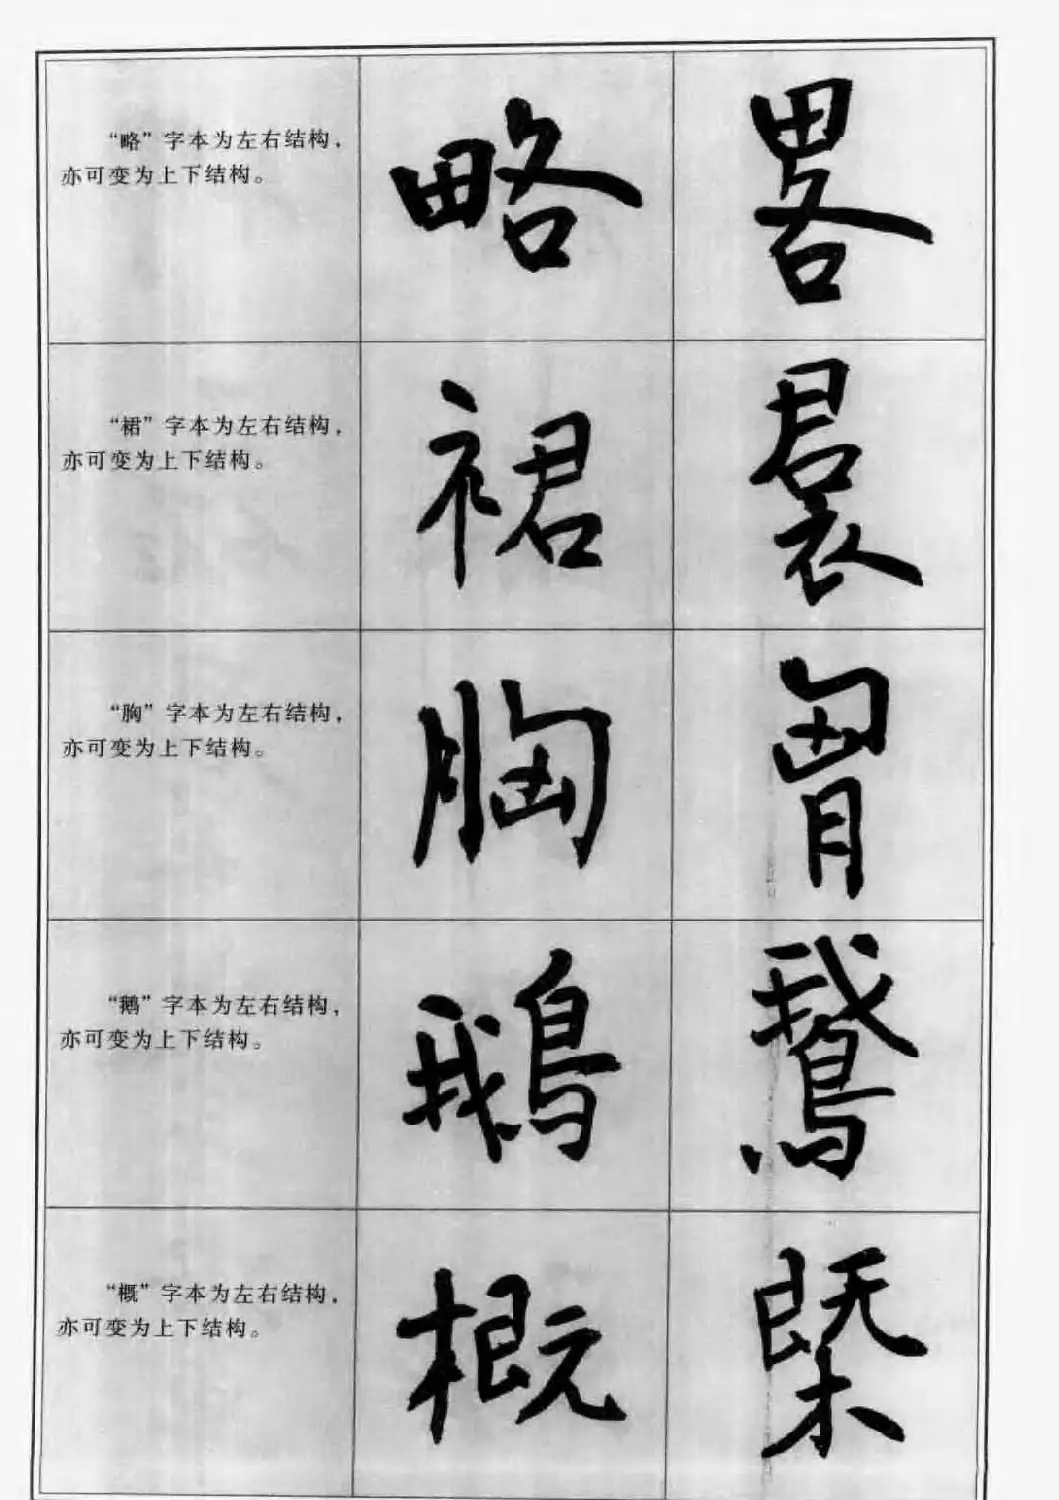 “略”字本为左右结构，
亦可变为上下结构。
略 畧
“裙”字本为左右结构，
亦可变为上下结构。
裙 裠
“胸”字本为左右结构，
亦可变为上下结构。
胸 胷
“鹅”字本为左右结构，
亦可变为上下结构。
鵝 鵞
“概”字本为左右结构，
亦可变为上下结构。
概 槩